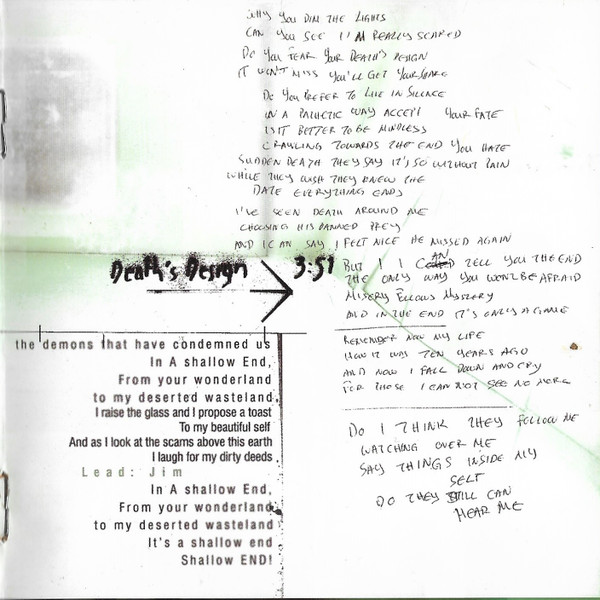 YOU DIM THE LIGHTS
CAN YOU SEE I'M REALLY SCARED
DO YOU FEAR YOUR DEATH'S DESIGN
IT WON'T MISS YOU'LL GET YOUR SHARE
DO YOU PREFER TO LIVE IN SILENCE
IN A PATHETIC WAY ACCEPT YOUR FATE
IS IT BETTER TO BE MINDLESS
CRAWLING TOWARDS THE END YOU HATE
SUDDEN DEATH THEY SAY IT'S SO WITHOUT PAIN
WHILE THEY WISH THEY KNEW THE
DATE EVERYTHING ENDS
I'VE SEEN DEATH AROUND ME
CHOOSING HIS DAMNED PREY
AND I CAN SAY I FELT NICE HE MISSED AGAIN
Death's Design 3:51
BUT I I CAN TELL YOU THE END
THE ONLY WAY YOU WON'T BE AFRAID
MISERY FOLLOWS MYSTERY
AND IN THE END IT'S ONLY A GAME
REMEMBER NOW MY LIFE
HOW IT WAS TEN YEARS AGO
AND NOW I FALL DOWN AND CRY
FOR THOSE I CAN NOT SEE NO MORE
DO I THINK THEY FOLLOW ME
WATCHING OVER ME
SAY THINGS INSIDE MY
SELF
DO THEY STILL CAN
HEAR ME
the demons that have condemned us
In A shallow End,
From your wonderland
to my deserted wasteland
I raise the glass and I propose a toast
To my beautiful self
And as I look at the scams above this earth
I laugh for my dirty deeds
Lead: Jim
In A shallow End,
From your wonderland
to my deserted wasteland
It's a shallow end
Shallow END!